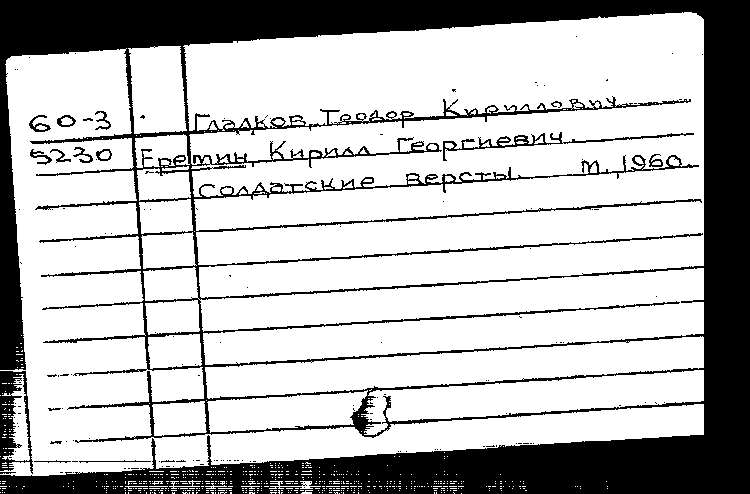 60-3 Гладков, Теодор Кириллович
5230 Еремин, Кирилл Георгиевич.
Солдатские версты. М., 1960.